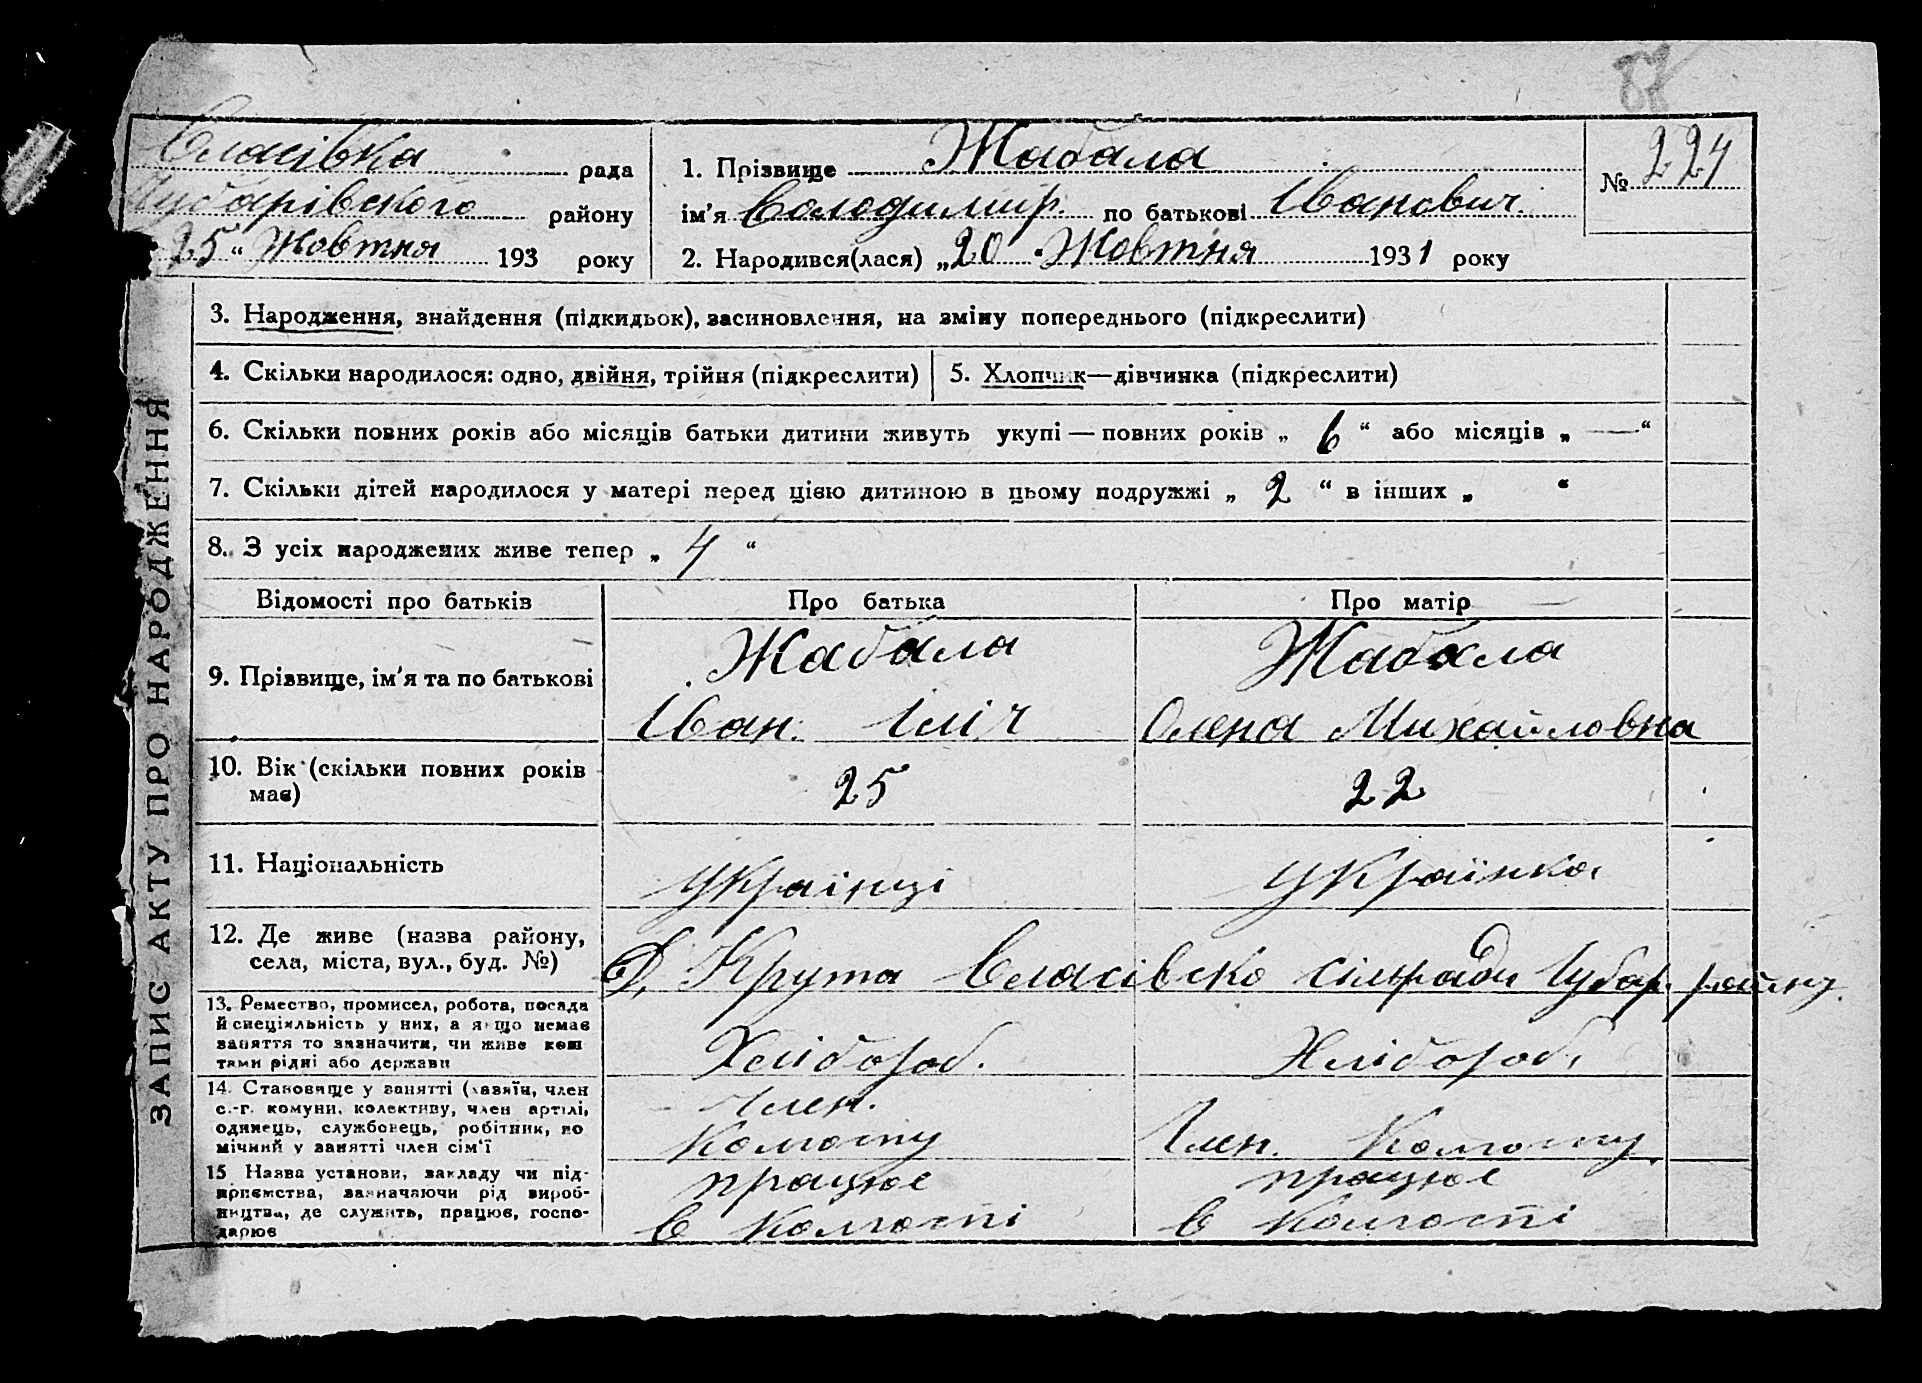 Власівка рада
Чубарівського району
25 “ Жовтня 193 року
1. Прізвище Жабала
ім'я Володимир. по батькові Іванович.
2. Народився(лася) „20 Жовтня 1931 року
№ 224
3. Народження, знайдення (підкидьок), засиновлення, на зміну попереднього (підкреслити)
4. Скільки народилося: одно, двійня, трійня (підкреслити)
5. Хлопчик—дівчинка (підкреслити)
6. Скільки повних років або місяців батьки дитини живуть укупі — повних років „ 6 “ або місяців „ — “
7. Скільки дітей народилося у матері перед цією дитиною в цьому подружжі „ 2 “ в інших „ “
8. З усіх народжених живе тепер „ 4 “
Відомості про батьків
Про батька
Про матір
9. Прізвище, ім'я та по батькові
Жабала
Іван. Іліч
Жабала
Олена Михайловна
10. Вік (скільки повних років
має)
25
22
11. Національність
Українці
Українка
12. Де живе (назва району,
села, міста, вул., буд. №)
Крута Власівско сільради Чубар. району.
13. Ремество, промисел, робота, посада
й спеціяльність у них, а якщо немає
заняття то зазначити, чи живе кош
тами рідні або держави
Хлібороб.
Хлібороб.
14. Становище у занятті (хазяїн, член
с.-г. комуни, колективу, член артілі,
одинець, службовець, робітник, по
мічний у занятті член сім'ї
Член.
Колгоспу
Член. Колгоспу
15 Назва установи, закладу чи під-
приємства, зазначаючи рід вироб-
ництва, де служить, працює, госпо-
дарює
працює
в колгоспі
працює
в колгоспі
ЗАПИС АКТУ ПРО НАРОДЖЕННЯ